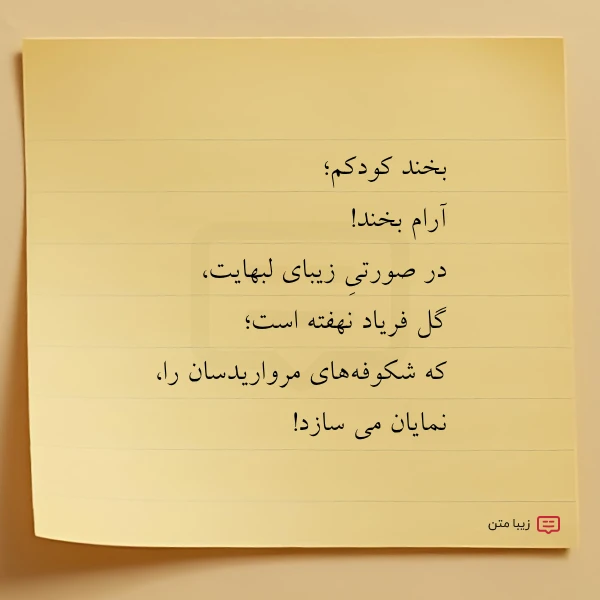 بخند کودکم؛
آرام بخند!
در صورتیِ زیبای لبهایت،
گل فریاد نهفته است؛
که شکوفه‌های مرواریدسان را،
نمایان می سازد!
زیبا متن